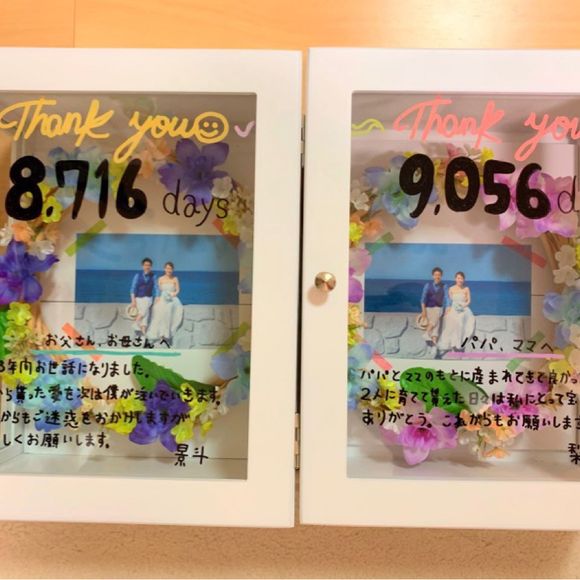 Thank you
8,716 days
お父さん、お母さんへ
年間お世話になりました。
から貰った愛を次は僕が注いでいきます。
からもご迷惑をおかけしますが
しくお願いします。
景斗
Thank you
9,056 d
パパ、ママへ
パパとママのもとに産まれてきて良かっ
2人に育てて貰えた日々は私にとって宝
ありがとう。これからもお願いしま